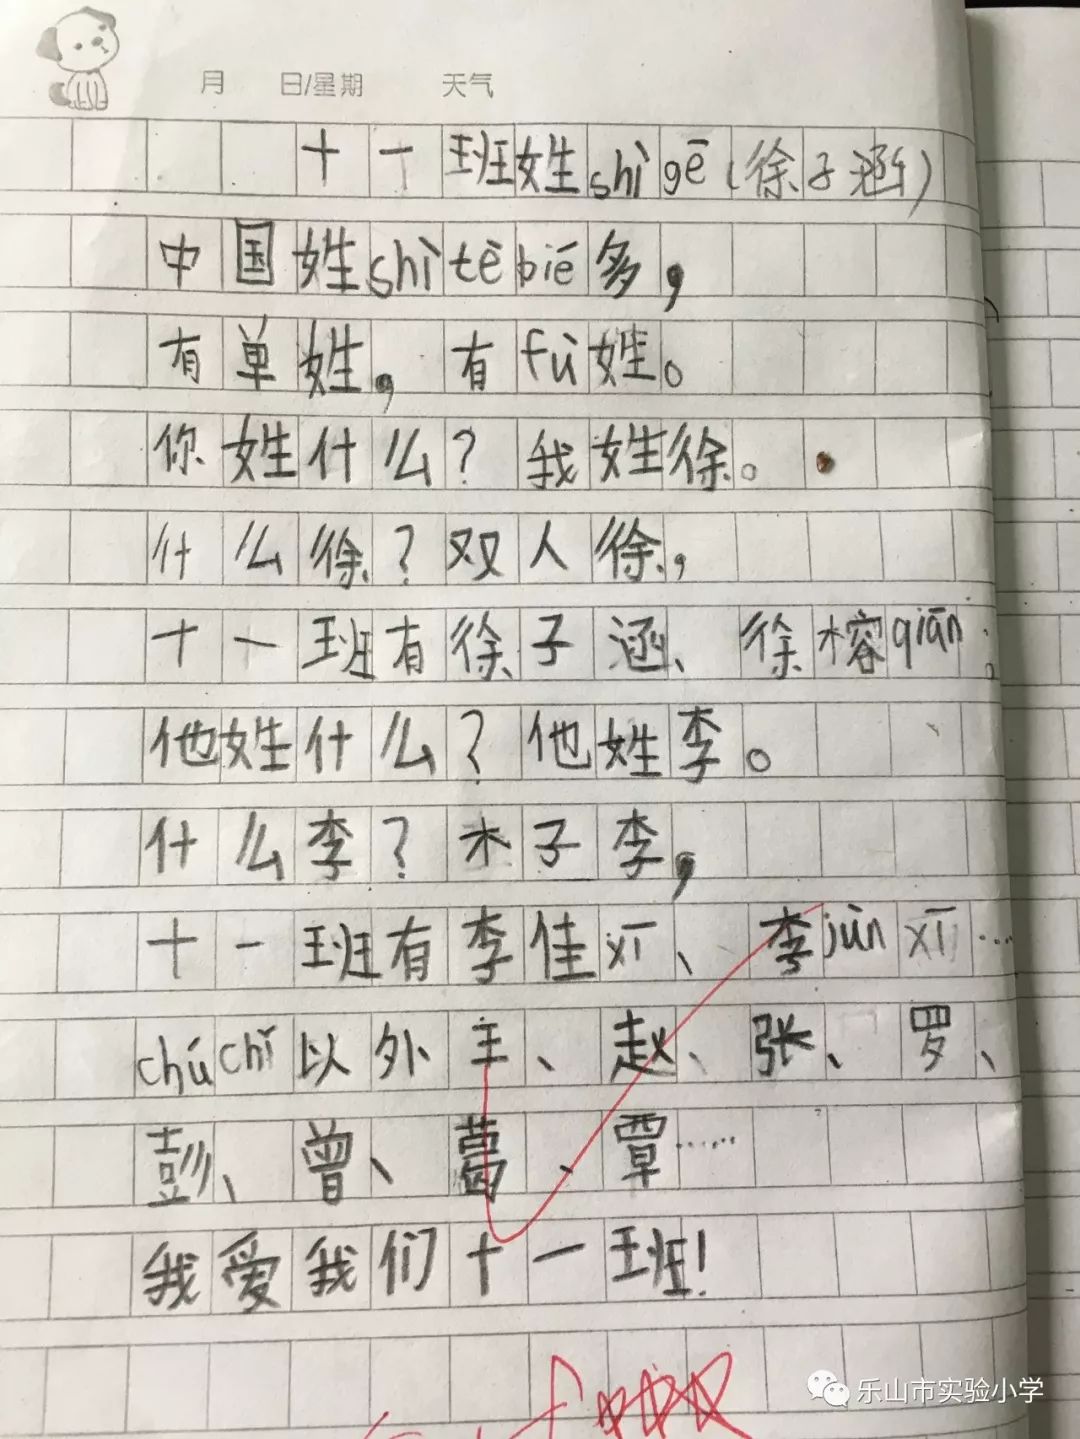 月 日/星期 天气
十一班姓shì gē(徐子涵)
中国姓shì tè bié多，
有单姓，有fù姓。
你姓什么？我姓徐。
什么徐？双人徐，
十一班有徐子涵、徐榕qiān。
他姓什么？他姓李。
什么李？木子李，
十一班有李佳xī、李jùn xī…
chú chǐ以外王、赵、张、罗、
彭、曾、葛、覃……
我爱我们十一班！
乐山市实验小学